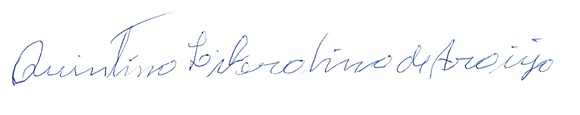 Quintino Liberalino de Araújo